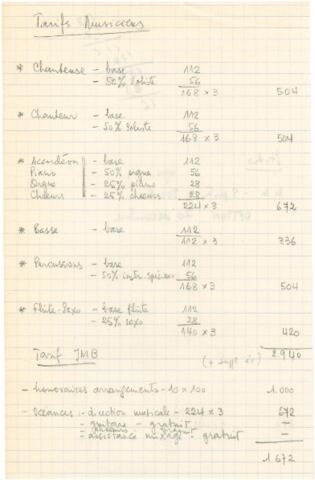 Tarifs Musiciens
* Chanteuse - base 112
- 50% soliste 56
168 x 3 504
* Chanteur - base 112
- 50% soliste 56
168 x 3 504
* Accordéon - base 112
Piano - 50% orgue 56
Orgue - 25% piano 28
Choeurs - 25% choeurs 28
224 x 3 672
* Basse - base 112
112 x 3 336
* Percussions - base 112
- 50% instr. spéciaux 56
168 x 3 504
* Flûte-Saxo - base flûte 112
- 25% saxo 28
140 x 3 420
2940
Tarif JMB
- honoraires arrangements - 10 x 100 1.000
- Séances : - direction musicale - 224 x 3 672
- guitare - gratuit —
- assistance mixage : gratuit —
1 672